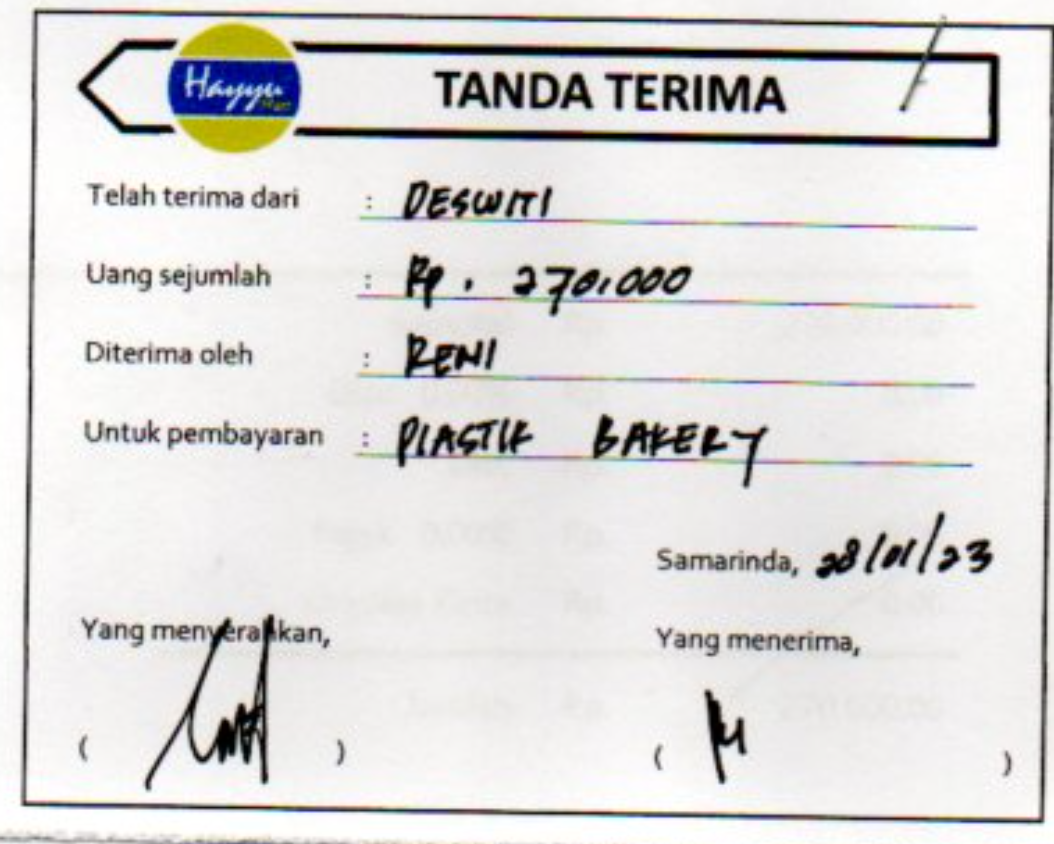 Hayyu
Mart
TANDA TERIMA
Telah terima dari : DESWITI
Uang sejumlah : Rp. 270.000
Diterima oleh : RENI
Untuk pembayaran : PLASTIK BAKERY
Samarinda, 28/01/23
Yang menyerahkan,
Yang menerima,
( )
( )